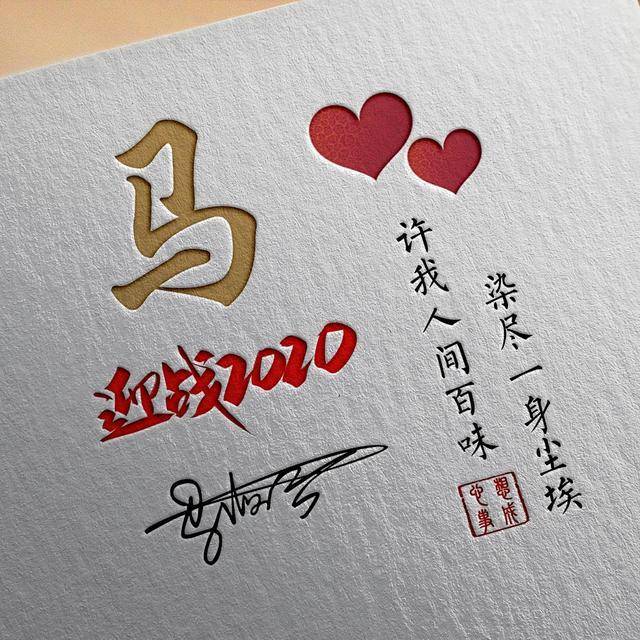 马
迎战2020
许我人间百味
染尽一身尘埃
心想
事成